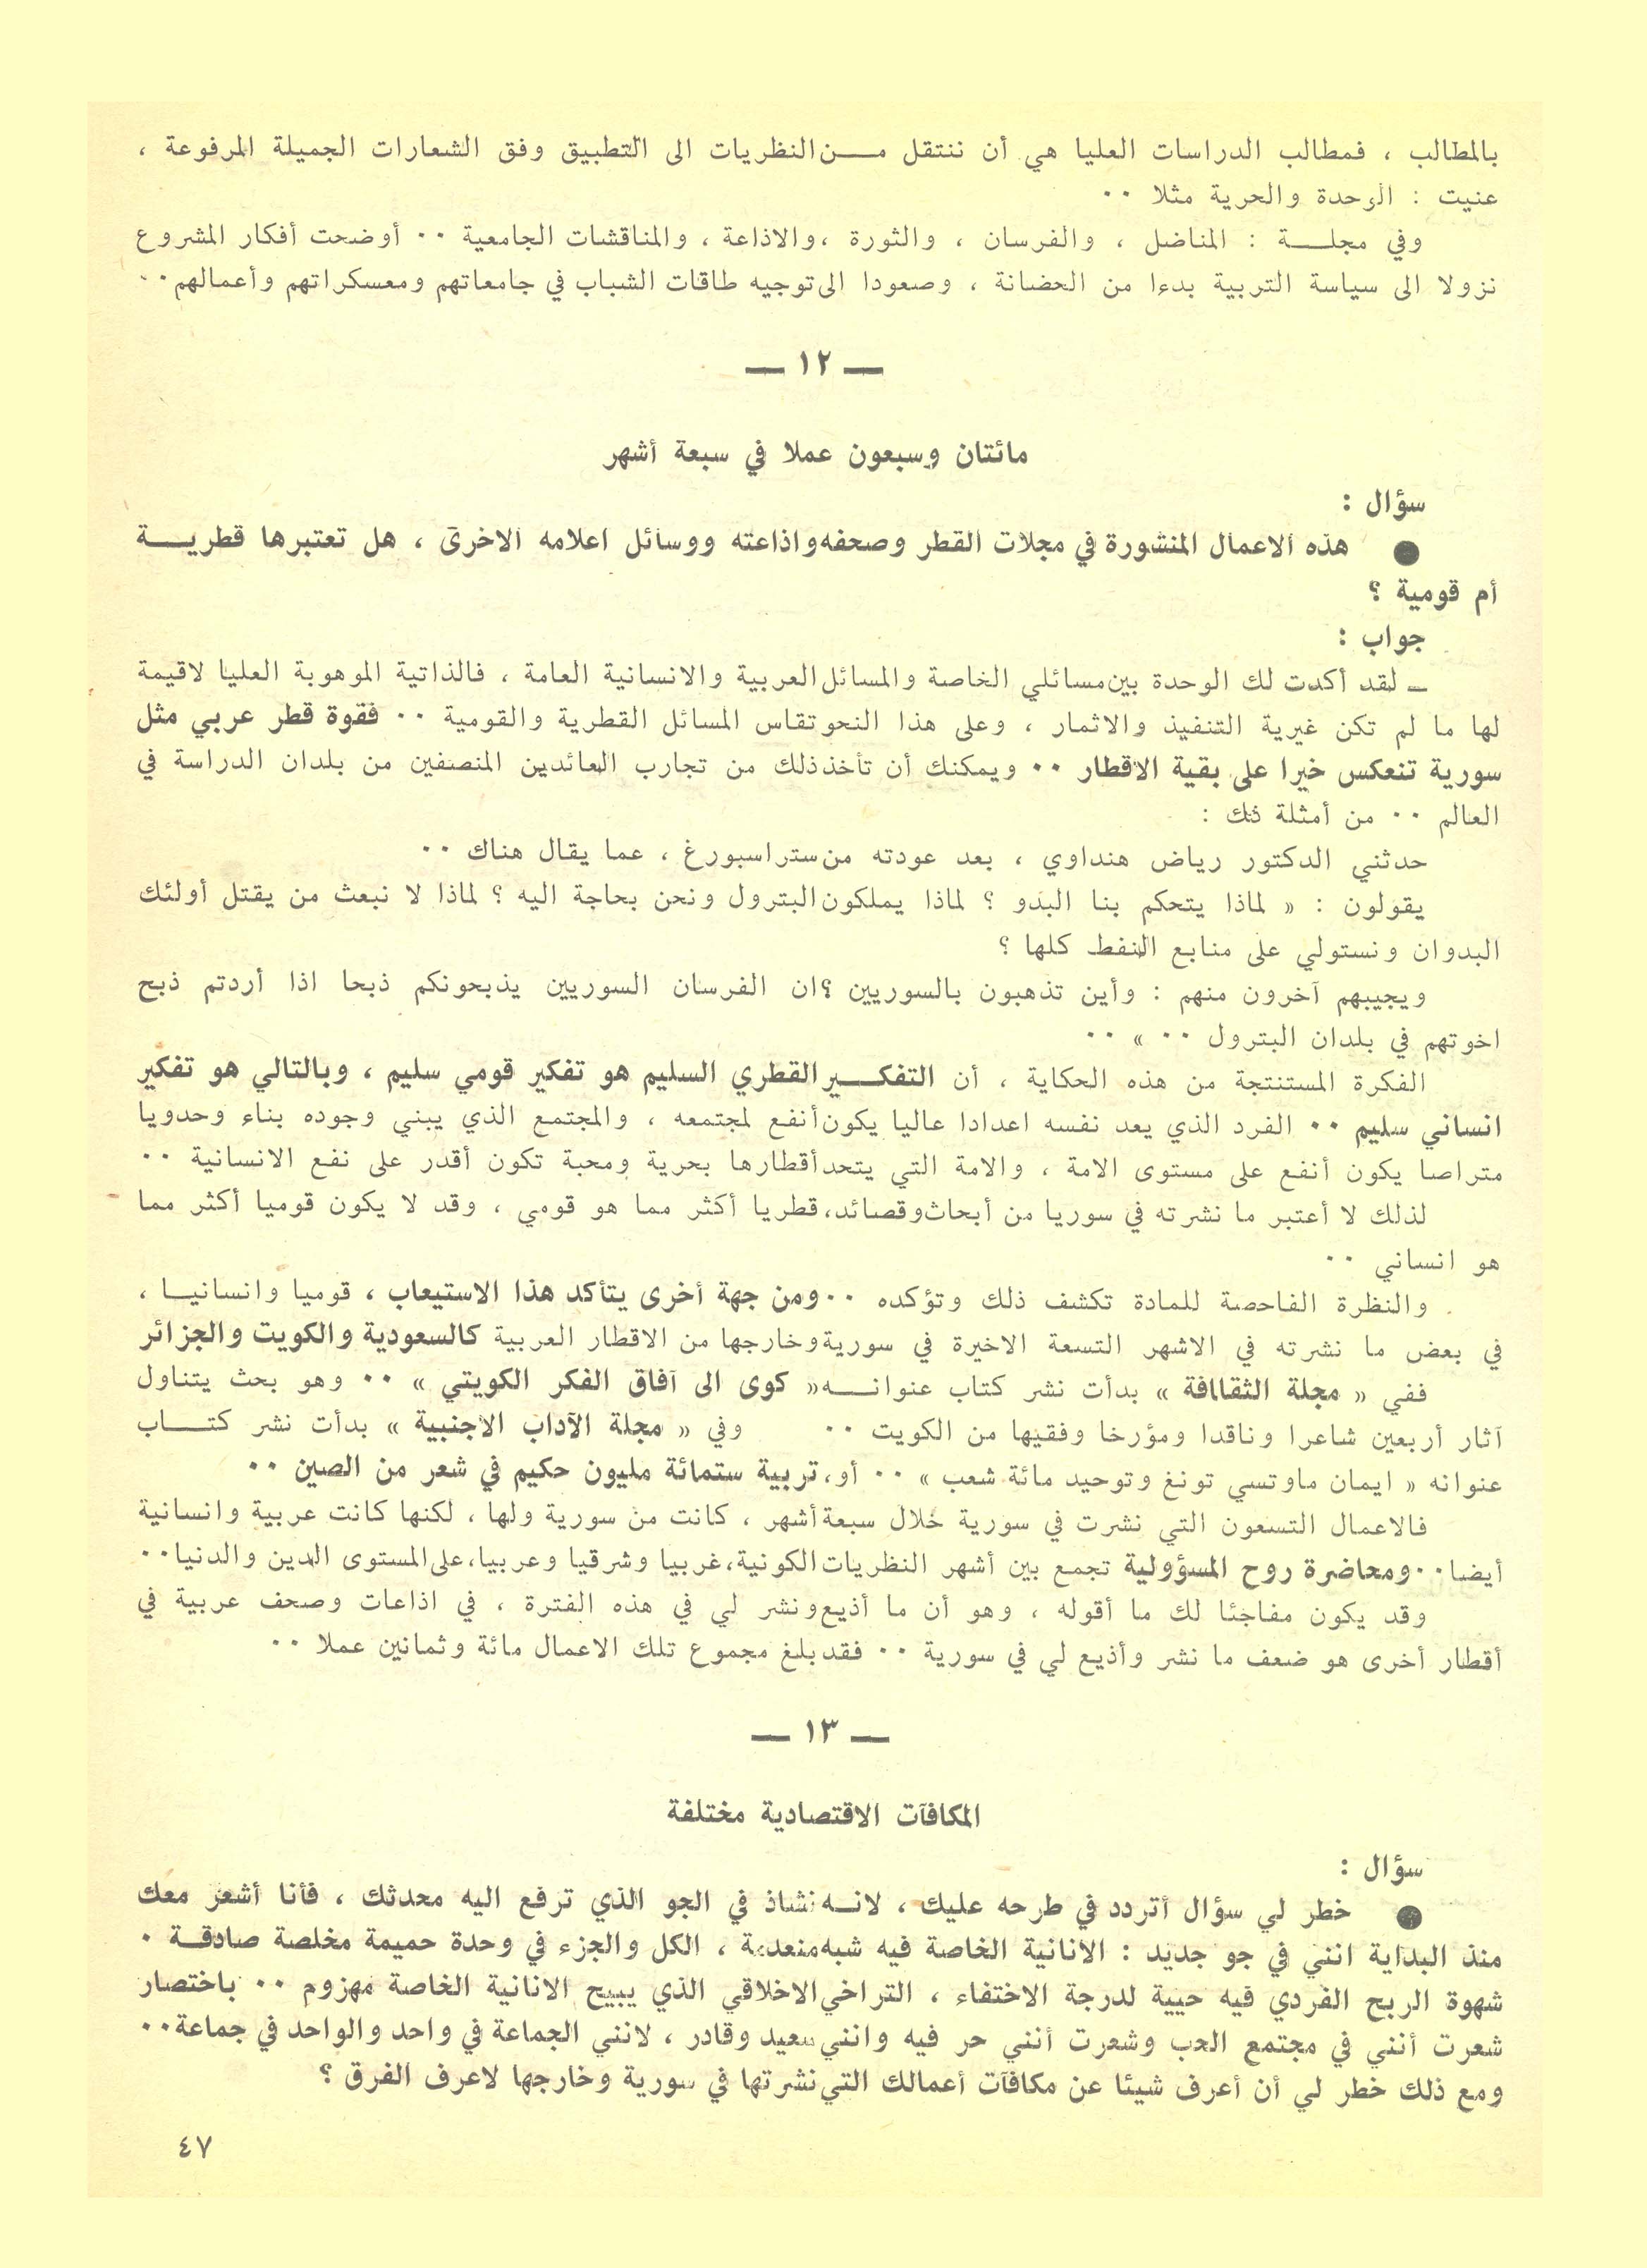 بالمطالب ، فمطالب الدراسات العليا هي أن ننتقل مـــن النظريات الى التطبيق وفق الشعارات الجميلة المرفوعة ،
عنيت : الوحدة والحرية مثلا ٠٠
وفي مجلـــة : المناضل ، والفرسان ، والثورة ، والاذاعة ، والمناقشات الجامعية ٠٠ أوضحت أفكار المشروع
نزولا الى سياسة التربية بدءا من الحضانة ، وصعودا الى توجيه طاقات الشباب في جامعاتهم ومعسكراتهم وأعمالهم ٠٠
— ١٢ —
مائتان وسبعون عملا في سبعة أشهر
سؤال :
● هذه الاعمال المنشورة في مجلات القطر وصحفه واذاعته ووسائل اعلامه الاخرى ، هل تعتبرها قطريـــة
أم قومية ؟
جواب :
ـ لقد أكدت لك الوحدة بين مسائلي الخاصة والمسائل العربية والانسانية العامة ، فالذاتية الموهوبة العليا لاقيمة
لها ما لم تكن غيرية التنفيذ والاثمار ، وعلى هذا النحو تقاس المسائل القطرية والقومية ٠٠ فقوة قطر عربي مثل
سورية تنعكس خيرا على بقية الاقطار ٠٠ ويمكنك أن تأخذ ذلك من تجارب العائدين المنصفين من بلدان الدراسة في
العالم ٠٠ من أمثلة ذك :
حدثني الدكتور رياض هنداوي ، بعد عودته من ستراسبورغ ، عما يقال هناك ٠٠
يقولون : « لماذا يتحكم بنا البدو ؟ لماذا يملكون البترول ونحن بحاجة اليه ؟ لماذا لا نبعث من يقتل أولئك
البدوان ونستولي على منابع النفط كلها ؟
ويجيبهم آخرون منهم : وأين تذهبون بالسوريين ؟ ان الفرسان السوريين يذبحونكم ذبحا اذا أردتم ذبح
اخوتهم في بلدان البترول ٠٠ » ٠٠
الفكرة المستنتجة من هذه الحكاية ، أن التفكـــير القطري السليم هو تفكير قومي سليم ، وبالتالي هو تفكير
انساني سليم ٠٠ الفرد الذي يعد نفسه اعدادا عاليا يكون أنفع لمجتمعه ، والمجتمع الذي يبني وجوده بناء وحدويا
متراصا يكون أنفع على مستوى الامة ، والامة التي يتحد أقطارها بحرية ومحبة تكون أقدر على نفع الانسانية ٠٠
لذلك لا أعتبر ما نشرته في سوريا من أبحاث وقصائد، قطريا أكثر مما هو قومي ، وقد لا يكون قوميا أكثر مما
هو انساني ٠٠
والنظرة الفاحصة للمادة تكشف ذلك وتؤكده ٠٠ ومن جهة أخرى يتأكد هذا الاستيعاب ، قوميا وانسانيـا ،
في بعض ما نشرته في الاشهر التسعة الاخيرة في سورية وخارجها من الاقطار العربية كالسعودية والكويت والجزائر
ففي « مجلة الثقاافة » بدأت نشر كتاب عنوانـــه « كوى الى آفاق الفكر الكويتي » ٠٠ وهو بحث يتناول
آثار أربعين شاعرا وناقدا ومؤرخا وفقيها من الكويت ٠٠ وفي « مجلة الآداب الاجنبية » بدأت نشر كتـــاب
عنوانه « ايمان ماوتسي تونغ وتوحيد مائة شعب » ٠٠ أو، تربية ستمائة مليون حكيم في شعر من الصين ٠٠
فالاعمال التسعون التي نشرت في سورية خلال سبعة أشهر ، كانت من سورية ولها ، لكنها كانت عربية وانسانية
أيضا ٠٠ ومحاضرة روح المسؤولية تجمع بين أشهر النظريات الكونية، غربيا وشرقيا وعربيا، على المستوى الدين والدنيا ٠٠
وقد يكون مفاجئا لك ما أقوله ، وهو أن ما أذيع ونشر لي في هذه الفترة ، في اذاعات وصحف عربية في
أقطار أخرى هو ضعف ما نشر وأذيع لي في سورية ٠٠ فقد بلغ مجموع تلك الاعمال مائة وثمانين عملا ٠٠
— ١٣ —
المكافآت الاقتصادية مختلفة
سؤال :
● خطر لي سؤال أتردد في طرحه عليك ، لانـــه نشاذ في الجو الذي ترفع اليه محدثك ، فأنا أشعر معك
منذ البداية انني في جو جديد : الانانية الخاصة فيه شبه منعدمة ، الكل والجزء في وحدة حميمة مخلصة صادقـة ٠
شهوة الربح الفردي فيه حيية لدرجة الاختفاء ، التراخي الاخلاقي الذي يبيح الانانية الخاصة مهزوم ٠٠ باختصار
شعرت أنني في مجتمع الحب وشعرت أنني حر فيه وانني سعيد وقادر ، لانني الجماعة في واحد والواحد في جماعة ٠٠
ومع ذلك خطر لي أن أعرف شيئا عن مكافآت أعمالك التي نشرتها في سورية وخارجها لاعرف الفرق ؟
٤٧